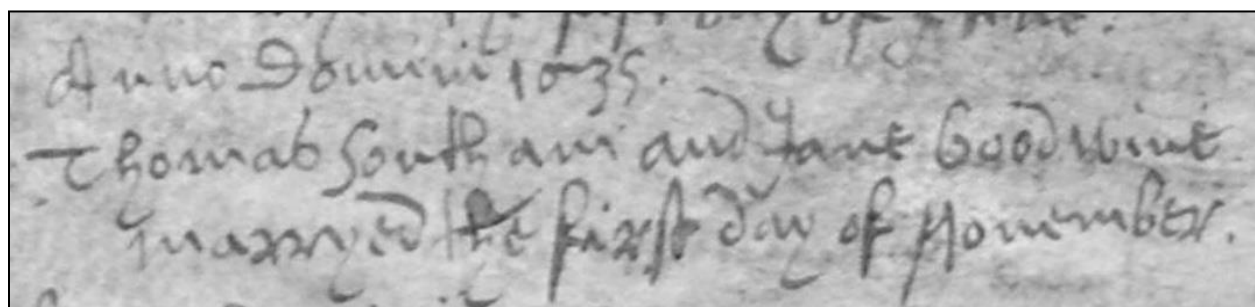 day of
Anno Domini 1635.
Thomas Southam and Jane Goodwine
marryed the first day of November.